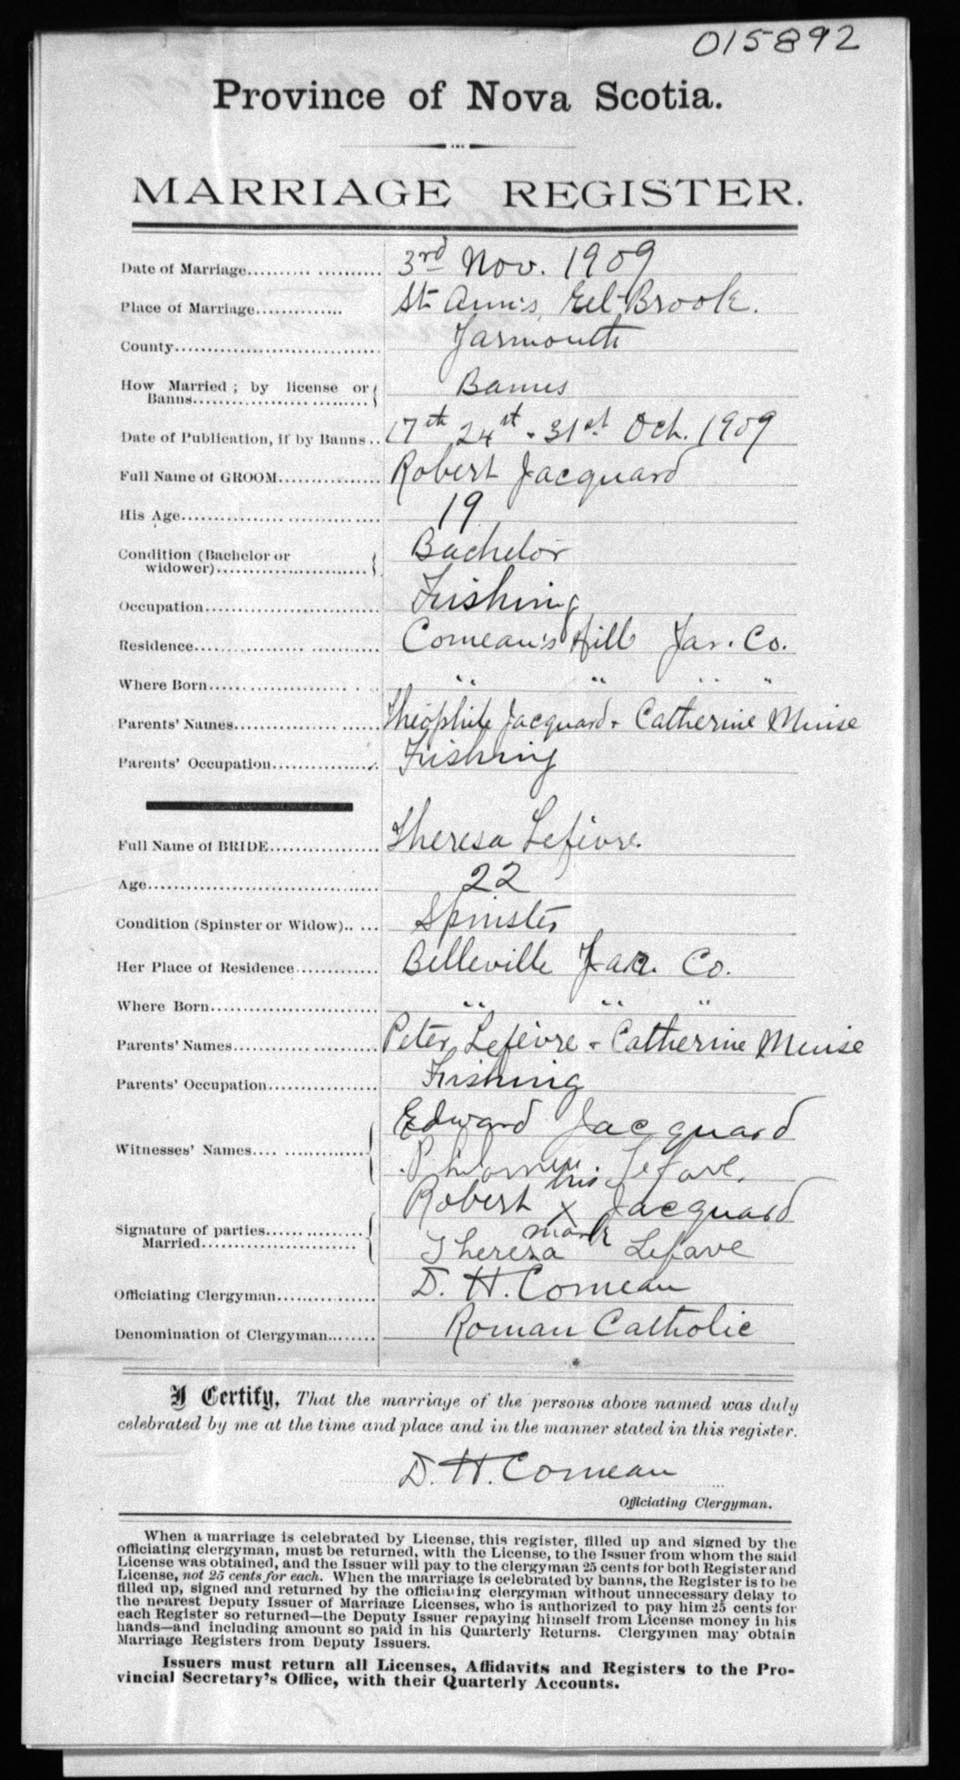 015892
Province of Nova Scotia.
MARRIAGE REGISTER.
Date of Marriage 3rd Nov. 1909
Place of Marriage St. Ann's, Eel-Brook.
County Yarmouth
How Married ; by license or Banns Banns
Date of Publication, if by Banns 17th 24st - 31st Oct. 1909
Full Name of GROOM Robert Jacquard
His Age 19
Condition (Bachelor or widower) Bachelor
Occupation Fishing
Residence Comeau's Hill Yar. Co.
Where Born " " " "
Parents' Names Theophile Jacquard + Catherine Muise
Parents' Occupation Fishing
Full Name of BRIDE Theresa Lefivre.
Age 22
Condition (Spinster or Widow) Spinster
Her Place of Residence Belleville Yar. Co.
Where Born " " "
Parents' Names Peter Lefeivre + Catherine Muise
Parents' Occupation Fishing
Witnesses' Names Edward Jacquard
Lefave.
Signature of parties Married Robert his X mark Jacquard
Theresa Lefave
Officiating Clergyman D. H. Comeau
Denomination of Clergyman Roman Catholic
I Certify, That the marriage of the persons above named was duly
celebrated by me at the time and place and in the manner stated in this register.
D. H. Comeau
Officiating Clergyman.
When a marriage is celebrated by License, this register, filled up and signed by the
officiating clergyman, must be returned, with the License, to the Issuer from whom the said
License was obtained, and the Issuer will pay to the clergyman 25 cents for both Register and
License, not 25 cents for each. When the marriage is celebrated by banns, the Register is to be
filled up, signed and returned by the officiating clergyman without unnecessary delay to
the nearest Deputy Issuer of Marriage Licenses, who is authorized to pay him 25 cents for
each Register so returned—the Deputy Issuer repaying himself from License money in his
hands—and including amount so paid in his Quarterly Returns. Clergymen may obtain
Marriage Registers from Deputy Issuers.
Issuers must return all Licenses, Affidavits and Registers to the Pro-
vincial Secretary's Office, with their Quarterly Accounts.